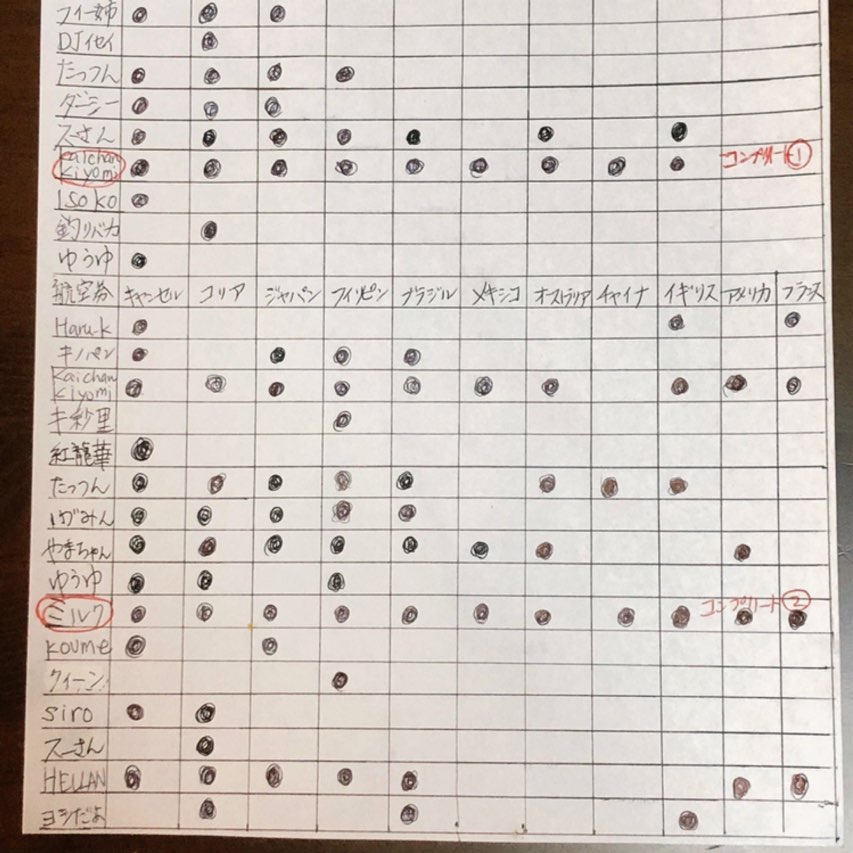 フィー姉
DJイセイ
たっつん
ダーシー
スーさん
Kaichan kiyomi コンプリート①
ISOKO
釣りバカ
ゆうゆ
航空券 キャンセル コリア ジャパン フィリピン ブラジル メキシコ オーストラリア チャイナ イギリス アメリカ フランス
Haru.k
キノパン
Kaichan kiyomi
キ紗里
紅龍華
たっつん
やまちゃん
ゆうゆ
ミルク コンプリート②
koume
クィーン
siro
スーさん
HELLAN
ヨシだよ